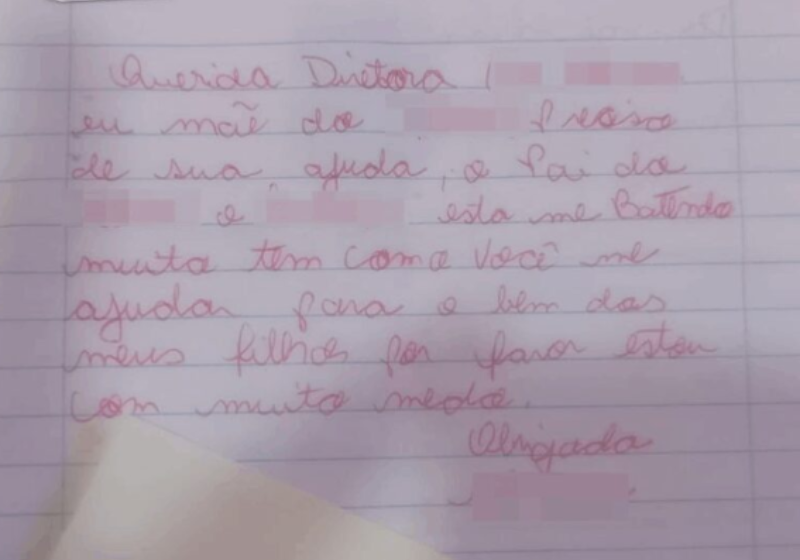 Querida Diretora
eu mãe do preciso
de sua ajuda, o pai do
e esta me Batendo
muito tem como você me
ajudar para o bem dos
meus filhos por favor estou
com muito medo.
Obrigada